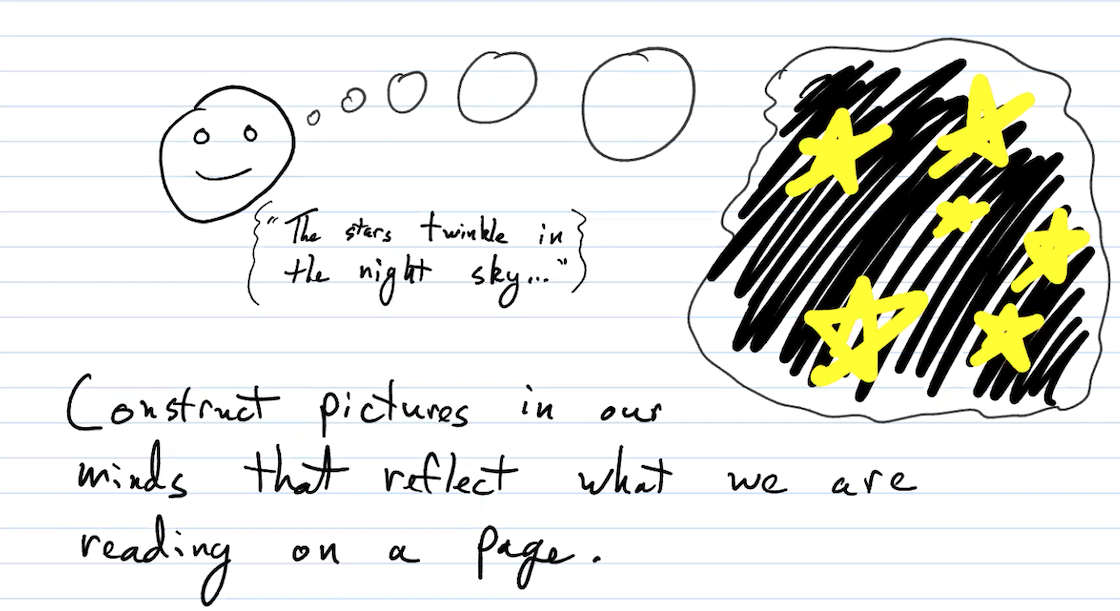 "The stars twinkle in
the night sky..."
Construct pictures in our
minds that reflect what we are
reading on a page.